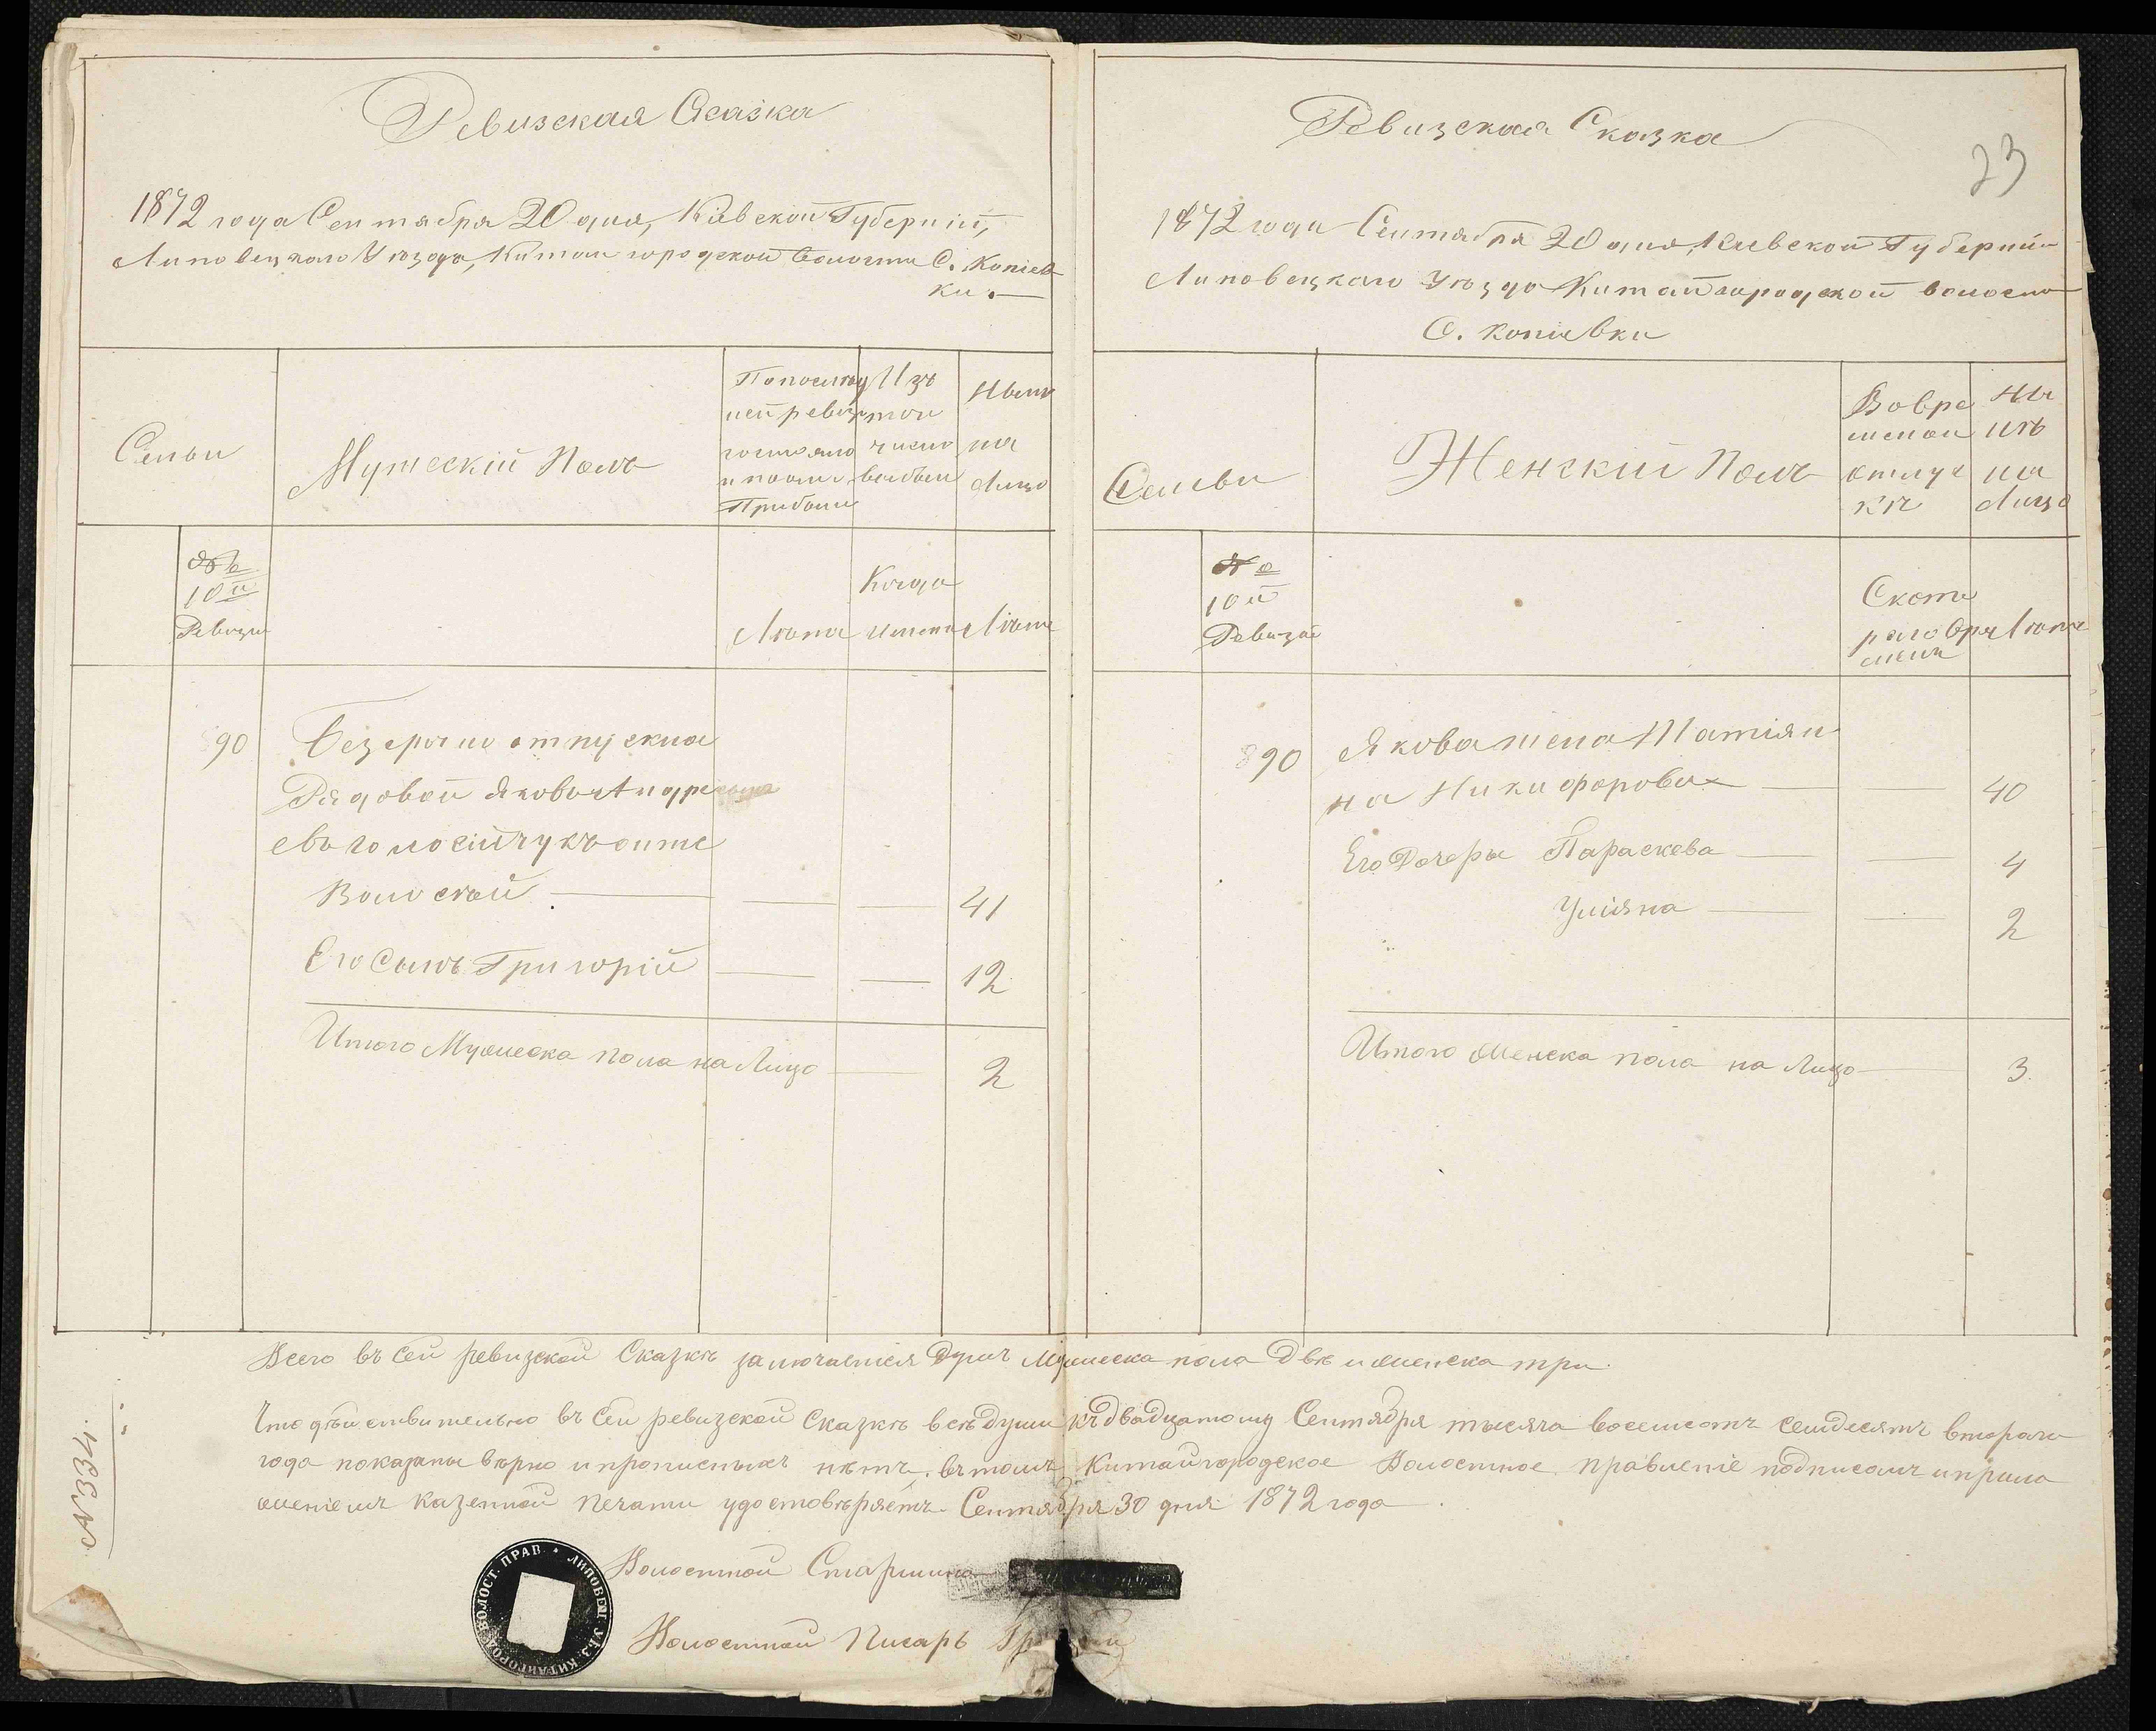 Ревизская Сказка
1872 года Сентября 20 дня, Кіевской Губерніи,
Липовецкаго Уѣзда, Китайгородской Волости С. Копіев
ки.
Семьи
Мужескій Полъ
По послѣд
ней ревизіи
состояло
и послѣ
Прибыло
Изъ
того
число
выбыло
Нынѣ
на
Лицо
№
10й
Ревизіи
Лѣта
Когда
именно
Лѣта
90
Безсрочно отпускной
Рядовой Яковъ Андре
евъ
Волоской
41
Его Сынъ Григорій
12
Итого Мужеска пола на Лицо
2
Ревизская Сказка
23
1872 года Сентября 20 дня, Киевской Губерніи
Липовецкаго Уѣзда Китайгородской волости
С. Копіевки
Семьи
Женскій Полъ
Во вре
менной
отлуч
кѣ
Ны
нѣ
на
Лицо
№
10й
Ревизіи
С кото
раго вре
мени
Лѣта
890
Якова жена Татіян
на Никифорова
40
Его Дочеры Параскева
4
Уліяна
2
Итого Женска пола на Лицо
3
Всего въ сей ревизской Сказкѣ заключается Душъ Мужеска пола Двѣ и женска три.
Что дѣйствительно въ сей ревизской Сказкѣ всѣ Души къ двадцатому Сентября тысяча восемсотъ семдесятъ втораго
года показаны вѣрно и прописныхъ нѣтъ. въ томъ Китайгородское Волостное правленіе подписомъ и прило
женіемъ казенной печати удостовѣряетъ. Сентября 30 дня 1872 года.
№334.
Волостной Старшина
Волостной Писарь
ЛИПОВЕЦ. УѢЗ. КИТАЙГОРОД. ВОЛОСТ. ПРАВ.